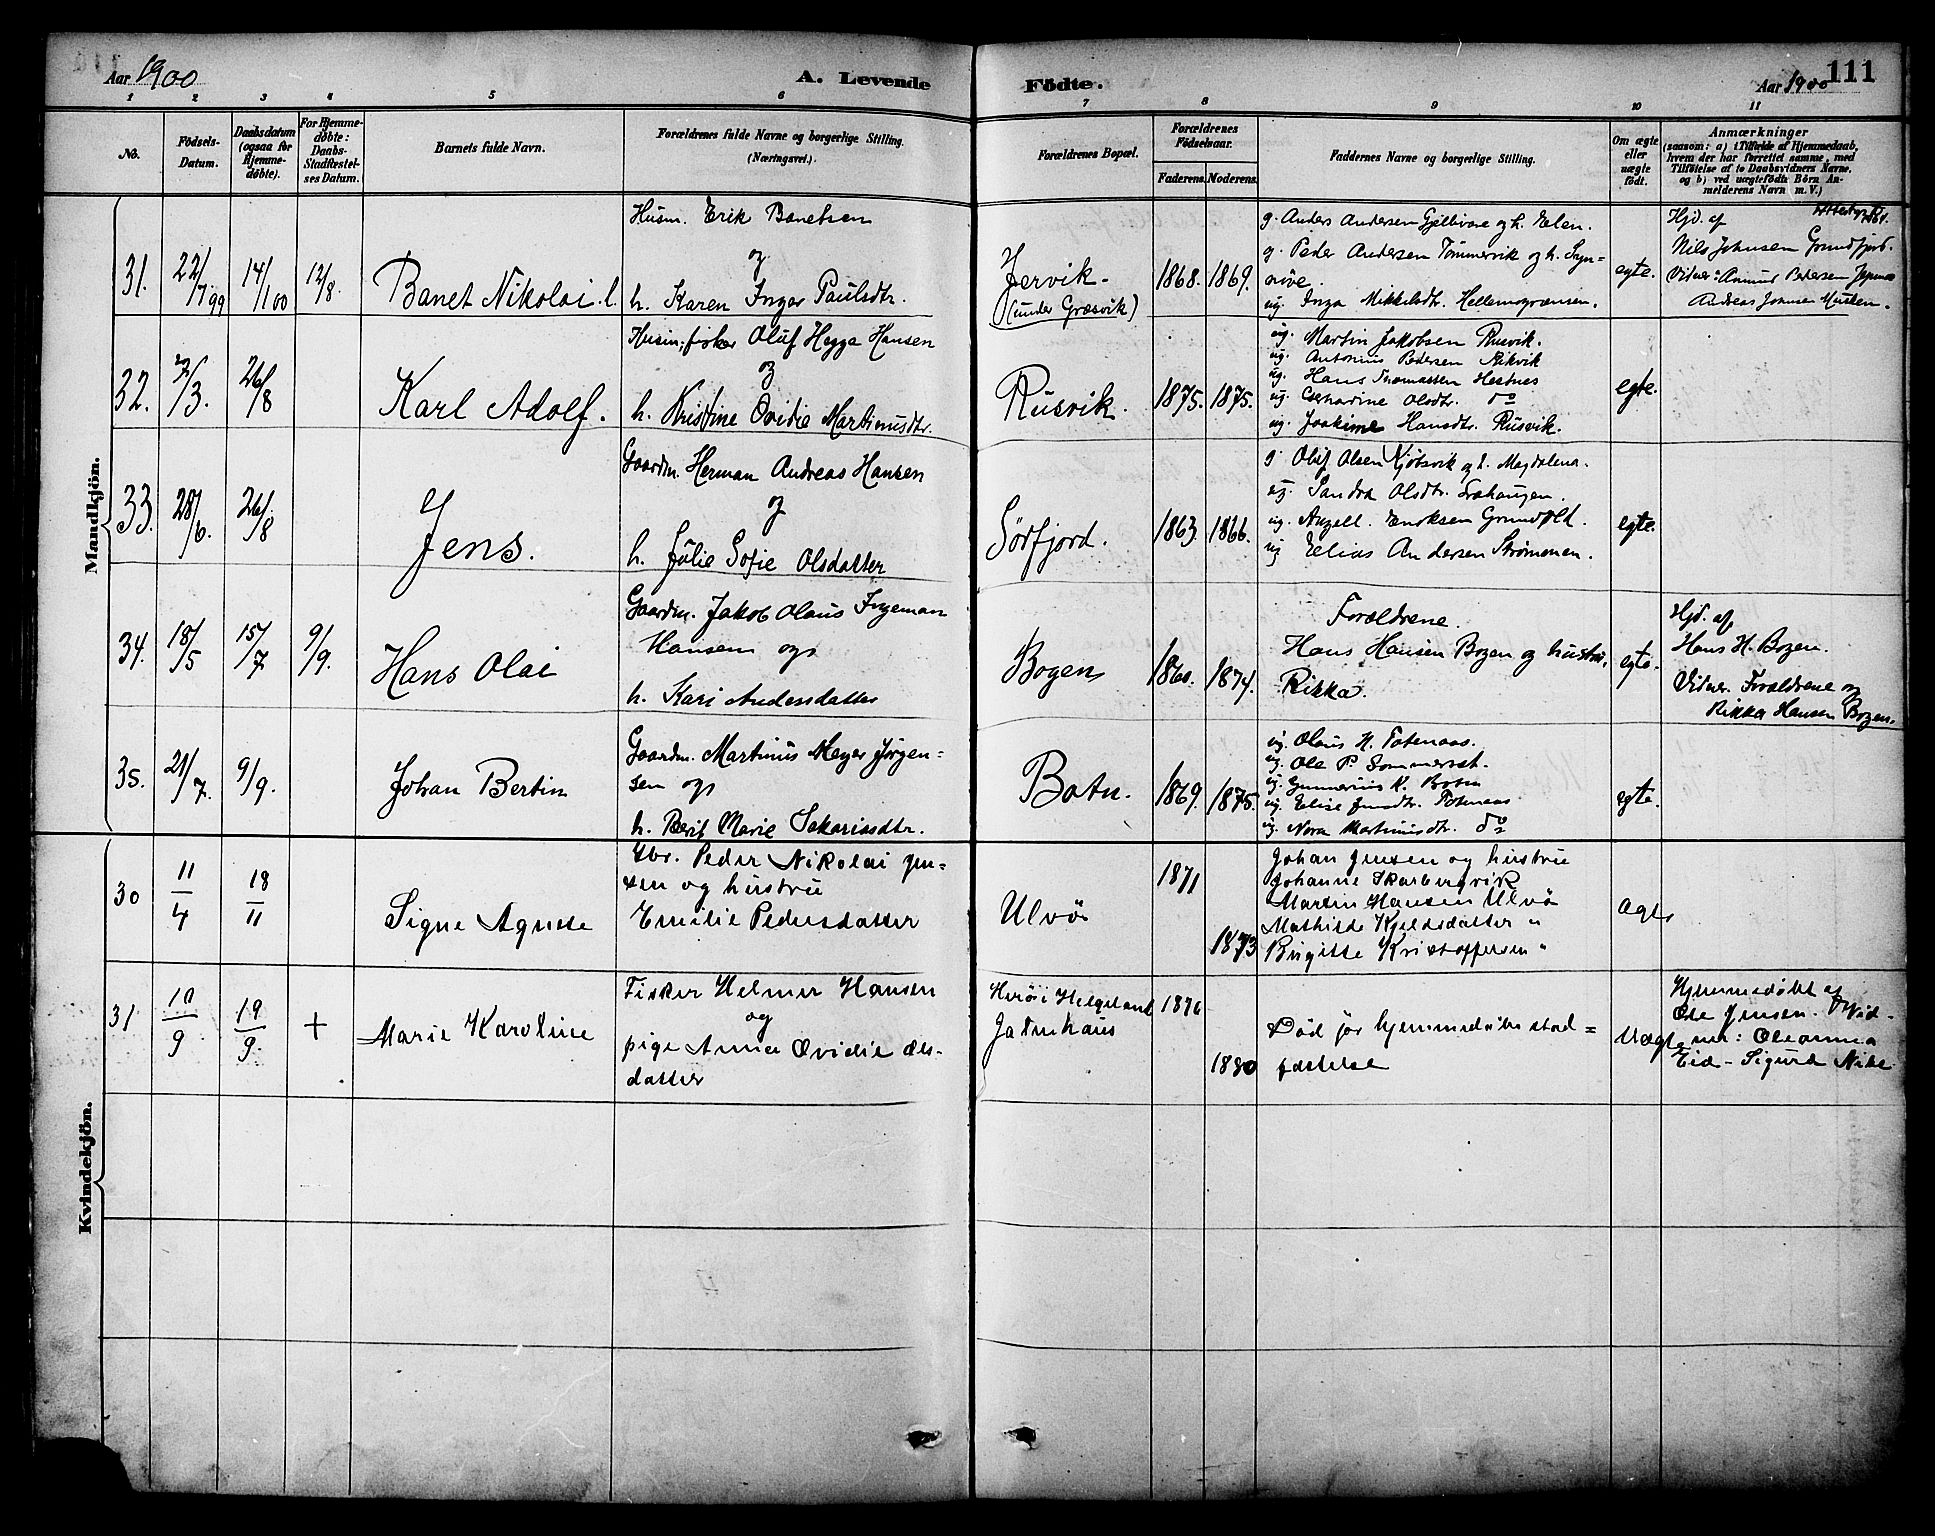 Aar 1900
A. Levende
Födte.
Aar 1900
111
1 2 3 4 5 6 7 8 9 10 11
No.
Födsels-
Datum.
Daabsdatum
(ogsaa for
Hjemme-
døbte).
For Hjemme-
døbte:
Daabs-
Stadfæstel-
ses Datum.
Barnets fulde Navn.
Forældrenes fulde Navne og borgerlige Stilling.
(Næringsvei.)
Forældrenes Bopæl.
Forældrenes
Fødselsaar.
Faderens.
Moderens.
Faddernes Navne og borgerlige Stilling.
Om ægte
eller
uægte
født.
Anmærkninger
(saasom: a) i Tilfælde af Hjemmedaab,
hvem der har forrettet samme, med
Tilføielse af to Daabsvidners Navne,
og b) ved uægtefødte Börn An-
melderens Navn m. V.)
Mandkjön.
31.
22/7 99
14/1 00
12/8.
Banet Nikolai.
Husm. Erik Banetsen
og
h. Karen Inger Paulsdtr.
Jervik.
(under Græsvik)
1868.
1869.
g. Anders Andersen Gjelbvare og h. Elen.
g. Peder Andersen Tömmervik og h. Syn-
növe.
ug. Inga Mikkelsdtr. Hellemogrænsen.
egte.
Hjd. af
Nils Johnsen Grundfjord.
Vidner: Amund Pedersen
Andreas Johnsen Musken.
32.
2/3.
26/8
Karl Adolf.
Husm., fisker Oluf Hegge Hansen
og
h. Kristine Ovidie Martinusdtr.
Rusvik.
1875.
1875.
ug. Martin Jakobsen Rusvik.
ug. Antonius Pedersen Kikvik
ug. Hans Thomassen Hestnes
ug. Olsdtr. do
ug. Joakime Hansdtr. Rusvik.
egte.
33.
28/6.
26/8
Jens.
Gaardm. Herman Andreas Hansen
og
h. Julie Sofie Olsdatter
Sörfjord.
1863.
1866.
g. Oluf Olsen Kjöbsvik og h. Magdalena.
ug. Sandra Olsdtr.
ug. Angell. Eriksen Grund
ug Elias Andersen Strömenen.
egte.
34.
18/5
15/7
9/9.
Hans Olai
Gaardm. Jakob Olaus Ingeman
Hansen og
h. Kari Andersdatter
Bogen
1860.
1874.
Forældrene.
Hans Hansen Bogen og hustru,
Rikka.
egte.
Hjd. af
Hans H. Bogen.
Vidner. Forældrene og
Rikka Hansen Bogen.
35.
21/7.
9/9.
Johan Bertin
Gaardm. Martinus Meyer Jörgen-
sen og
h. Berit Marie Sakariasdtr.
Botn.
1869.
1875.
ug. Olaus H. Fotenaas.
ug. Ole P. Sommerset.
ug. Gunnerius K. Botn
ug. Elise Jensdtr. Fotenaas
ug. Nora Martinusdtr. do
egte.
Kvindekjön.
30
11/4
18/11
Signe Agnete
Gbr. Peder Nikolai Jen-
sen og hustru
Emilie Pedersdatter
Ulvö
1871
1873
Johan Jensen og hustru
Johanne Skarbergvik
Martin Hansen Ulvö
Mathilde Kjeldsdatter "
Birgitte Kristoffersen "
Ægte
31
10/9
19/9.
+
Marie Karoline
Fisker Helmer Hansen
og
pige Anna Ovidie Ols-
datter
Herö i Helgeland
1876
1880
Död för hjemmedaabs stad=
fæstelse
Uægte
Hjemmedöbt af
Ole Jensen. Vid-
ner: Oleanna
Eid – Sigurd